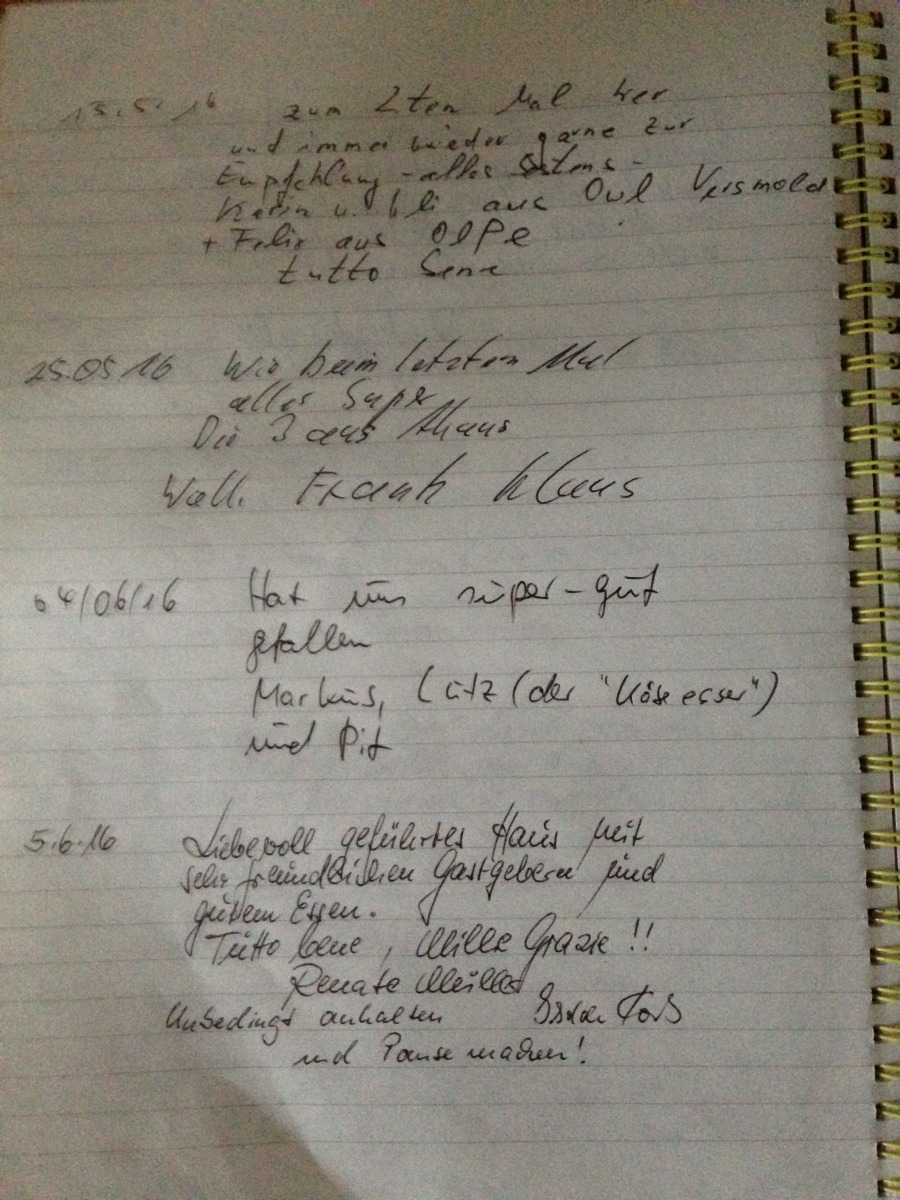 15.5.16 zum 2ten Mal hier
und immer wieder gerne zur
Empfehlung - alles
Karin u. aus Owl Versmold
+ Felix aus Olpe
tutto bene
25.05.16 Wie beim letzten Mal
alles Super
Die 3 aus Ahaus
Frank Klaus
04/06/16 Hat uns super-gut
gefallen
Markus, Lutz (der "Käseesser")
und Pit
5.6.16 Liebevoll geführtes Haus mit
sehr freundlichen Gastgebern und
gutem Essen.
Tutto bene, Mille Grazie!!
Renate Müller
Unbedingt anhalten
und Pause machen!